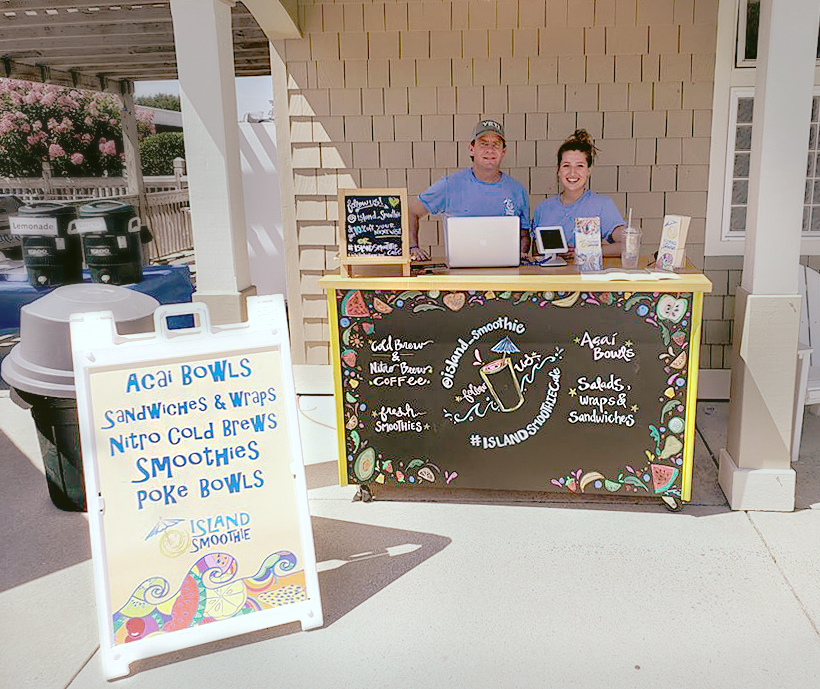 Lemonade
YETI
follow us!
@island_smoothie
your
#island smoothie
cafe
ACAI BOWLS
SANDWICHES & WRAPS
NITRO COLD BREWS
SMOOTHIES
POKE BOWLS
ISLAND
SMOOTHIE
Cold Brew
&
Nitro Brew
COFFEE
fresh
SMOOTHIES
@island_smoothie
follow us!
#ISLANDSMOOTHIECafe
Acai
Bowls
Salads,
wraps &
Sandwiches